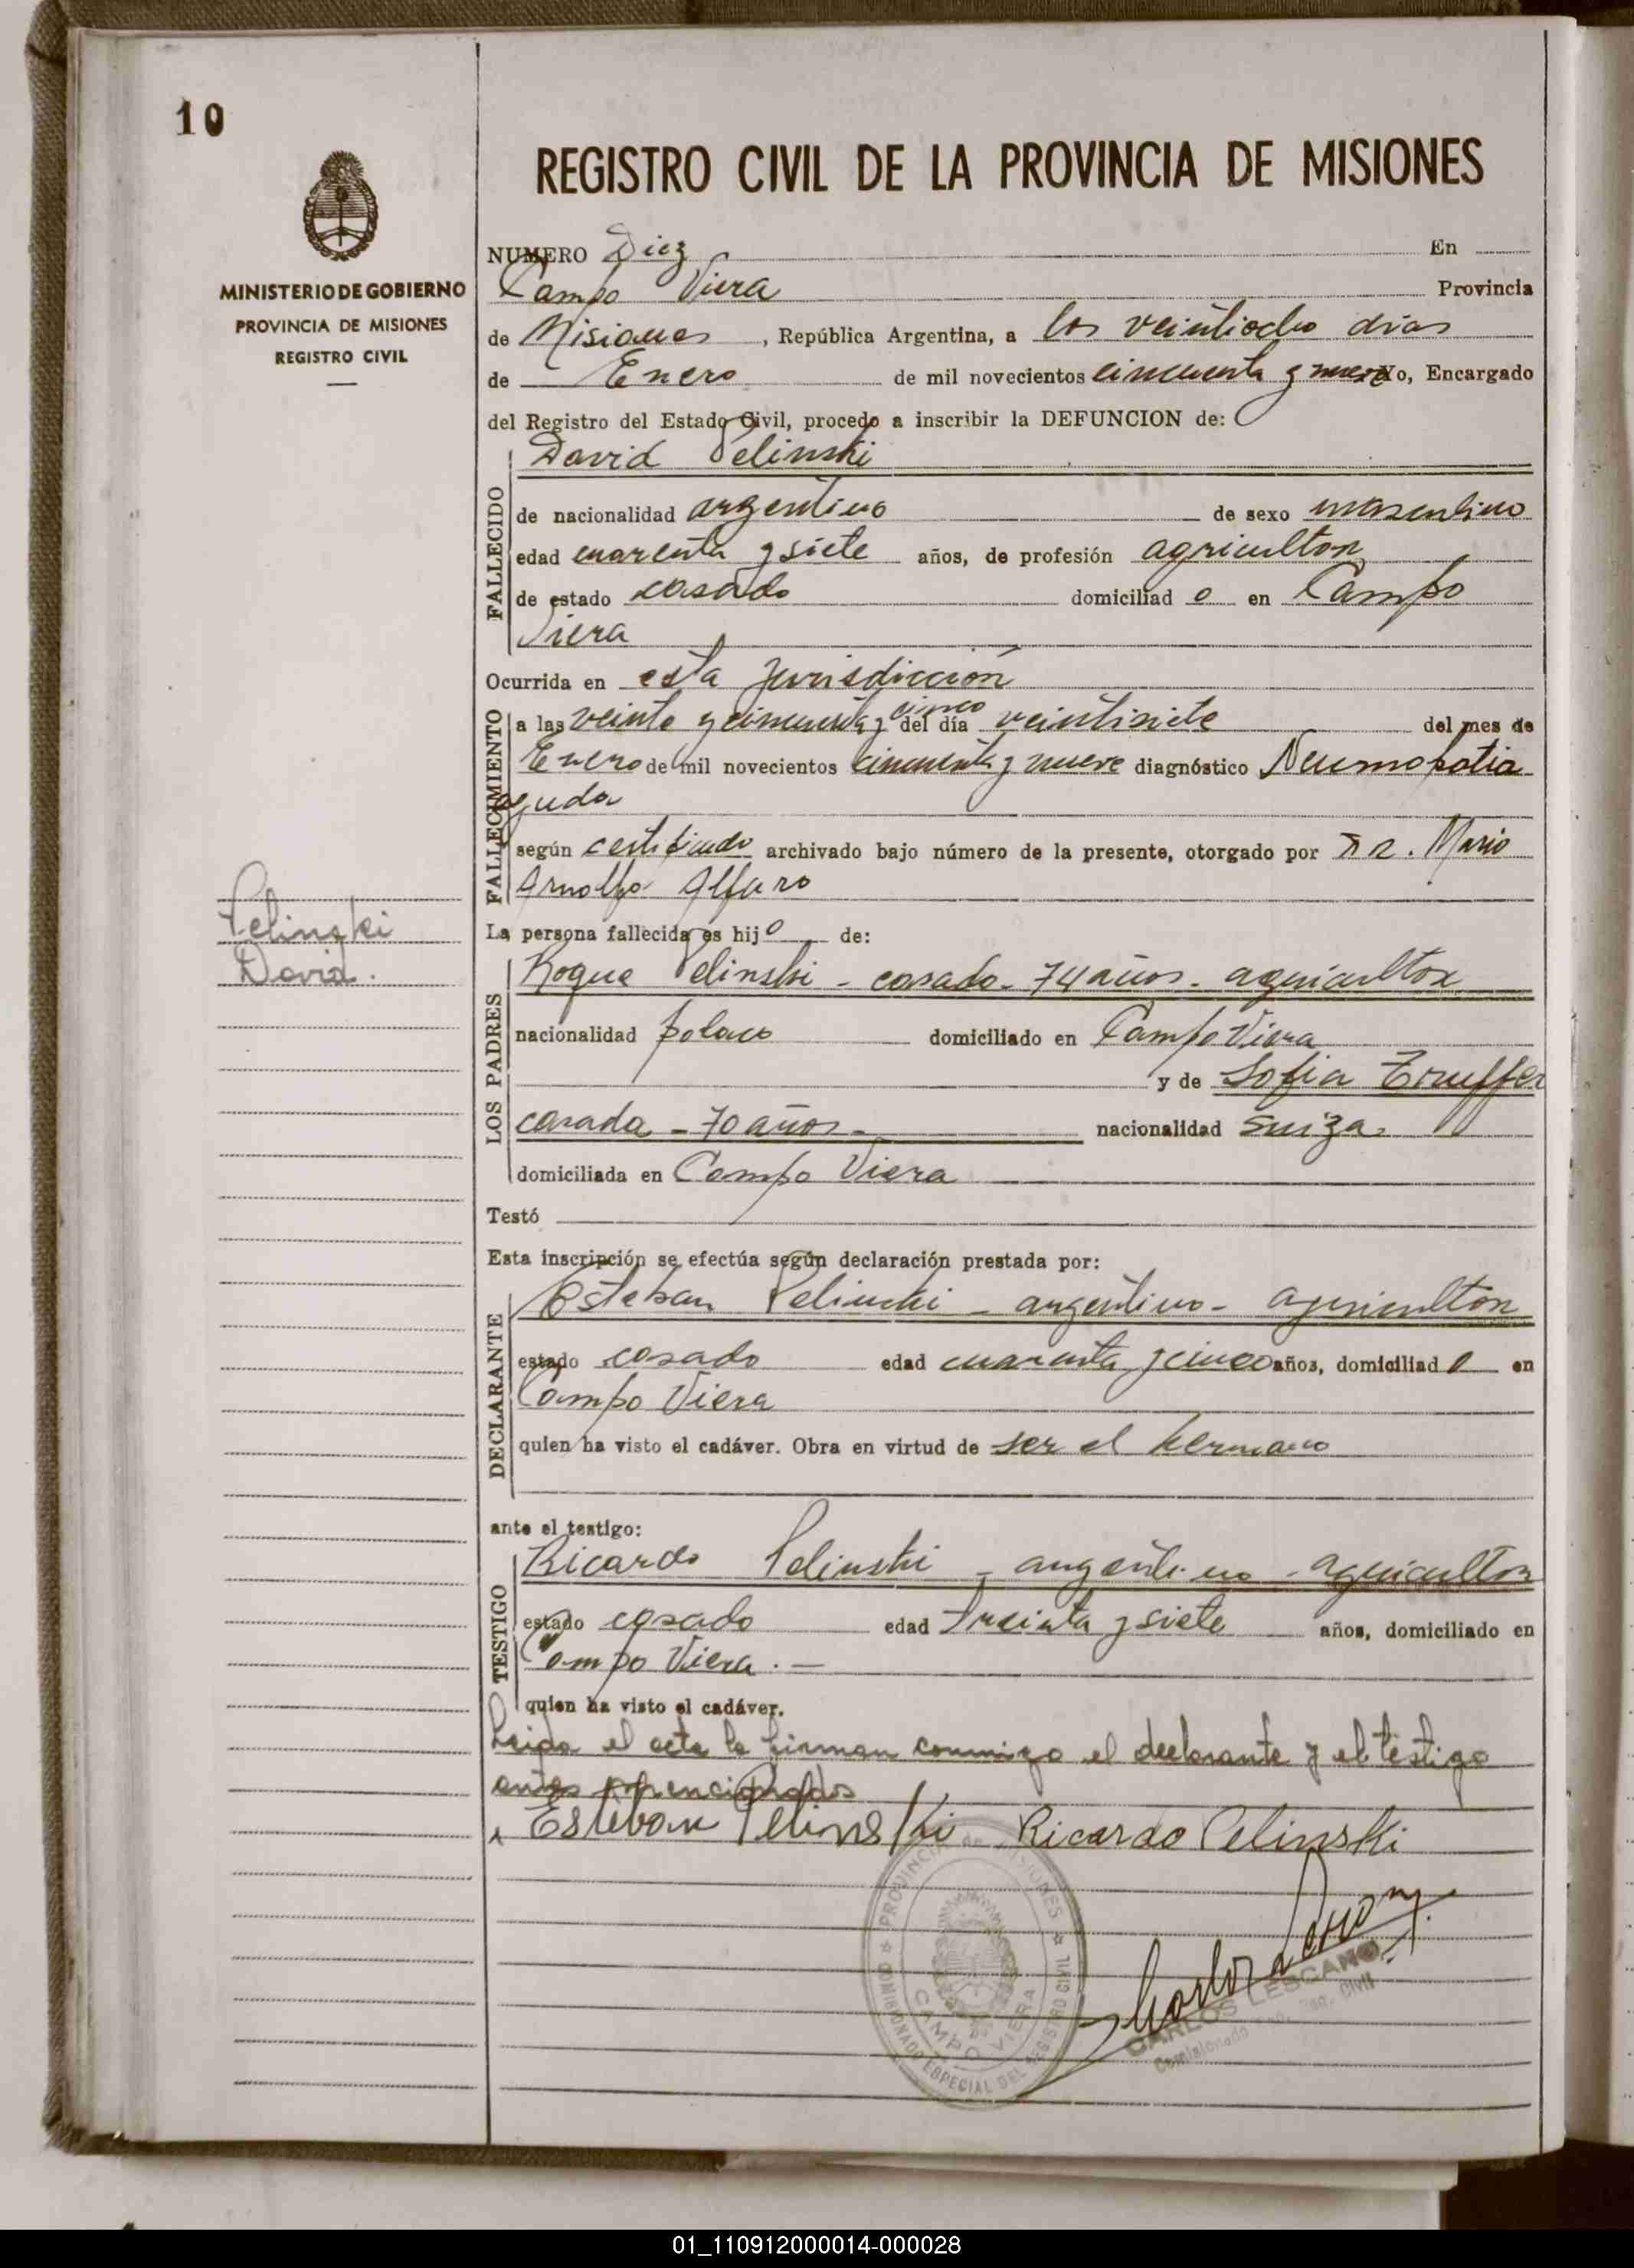 10
MINISTERIO DE GOBIERNO
PROVINCIA DE MISIONES
REGISTRO CIVIL
Pelinski
David.
REGISTRO CIVIL DE LA PROVINCIA DE MISIONES
NUMERO Diez En
Campo Viera Provincia
de Misiones, República Argentina, a los veintiocho días
de Enero de mil novecientos cincuenta y nueve Yo, Encargado
del Registro del Estado Civil, procedo a inscribir la DEFUNCION de:
David Pelinski
FALLECIDO
de nacionalidad argentino de sexo masculino
edad cuarenta y siete años, de profesión agricultor
de estado casado domiciliad o en Campo
Viera
Ocurrida en esta jurisdicción
FALLECIMIENTO
a las veinte y cincuenta y cinco del día veintisiete del mes de
Enero de mil novecientos cincuenta y nueve diagnóstico Neumopatia
aguda
según certificado archivado bajo número de la presente, otorgado por Dr. Mario
Arnolfo Alfaro
La persona fallecida es hijo de:
LOS PADRES
Roque Pelinski - casado - 74 años - agricultor
nacionalidad polaco domiciliado en Campo Viera
y de Sofia
casada - 70 años - nacionalidad suiza
domiciliada en Campo Viera
Testó
Esta inscripción se efectúa según declaración prestada por:
DECLARANTE
Esteban Pelinski - argentino - agricultor
estado casado edad cuarenta y cinco años, domiciliad o en
Campo Viera
quien ha visto el cadáver. Obra en virtud de ser el hermano
ante el testigo:
TESTIGO
Ricardo Pelinski - argentino - agricultor
estado casado edad treinta y siete años, domiciliado en
Campo Viera. -
quien ha visto el cadáver.
Leida el acta la firman conmigo el declarante y el testigo
antes mencionados
Esteban Pelinski Ricardo Pelinski
PROVINCIA DE MISIONES
COMISIONADO ESPECIAL DEL REGISTRO CIVIL
CAMPO VIERA
CARLOS LESCANO
Comisionado Esp. Reg. Civil
01_110912000014-000028